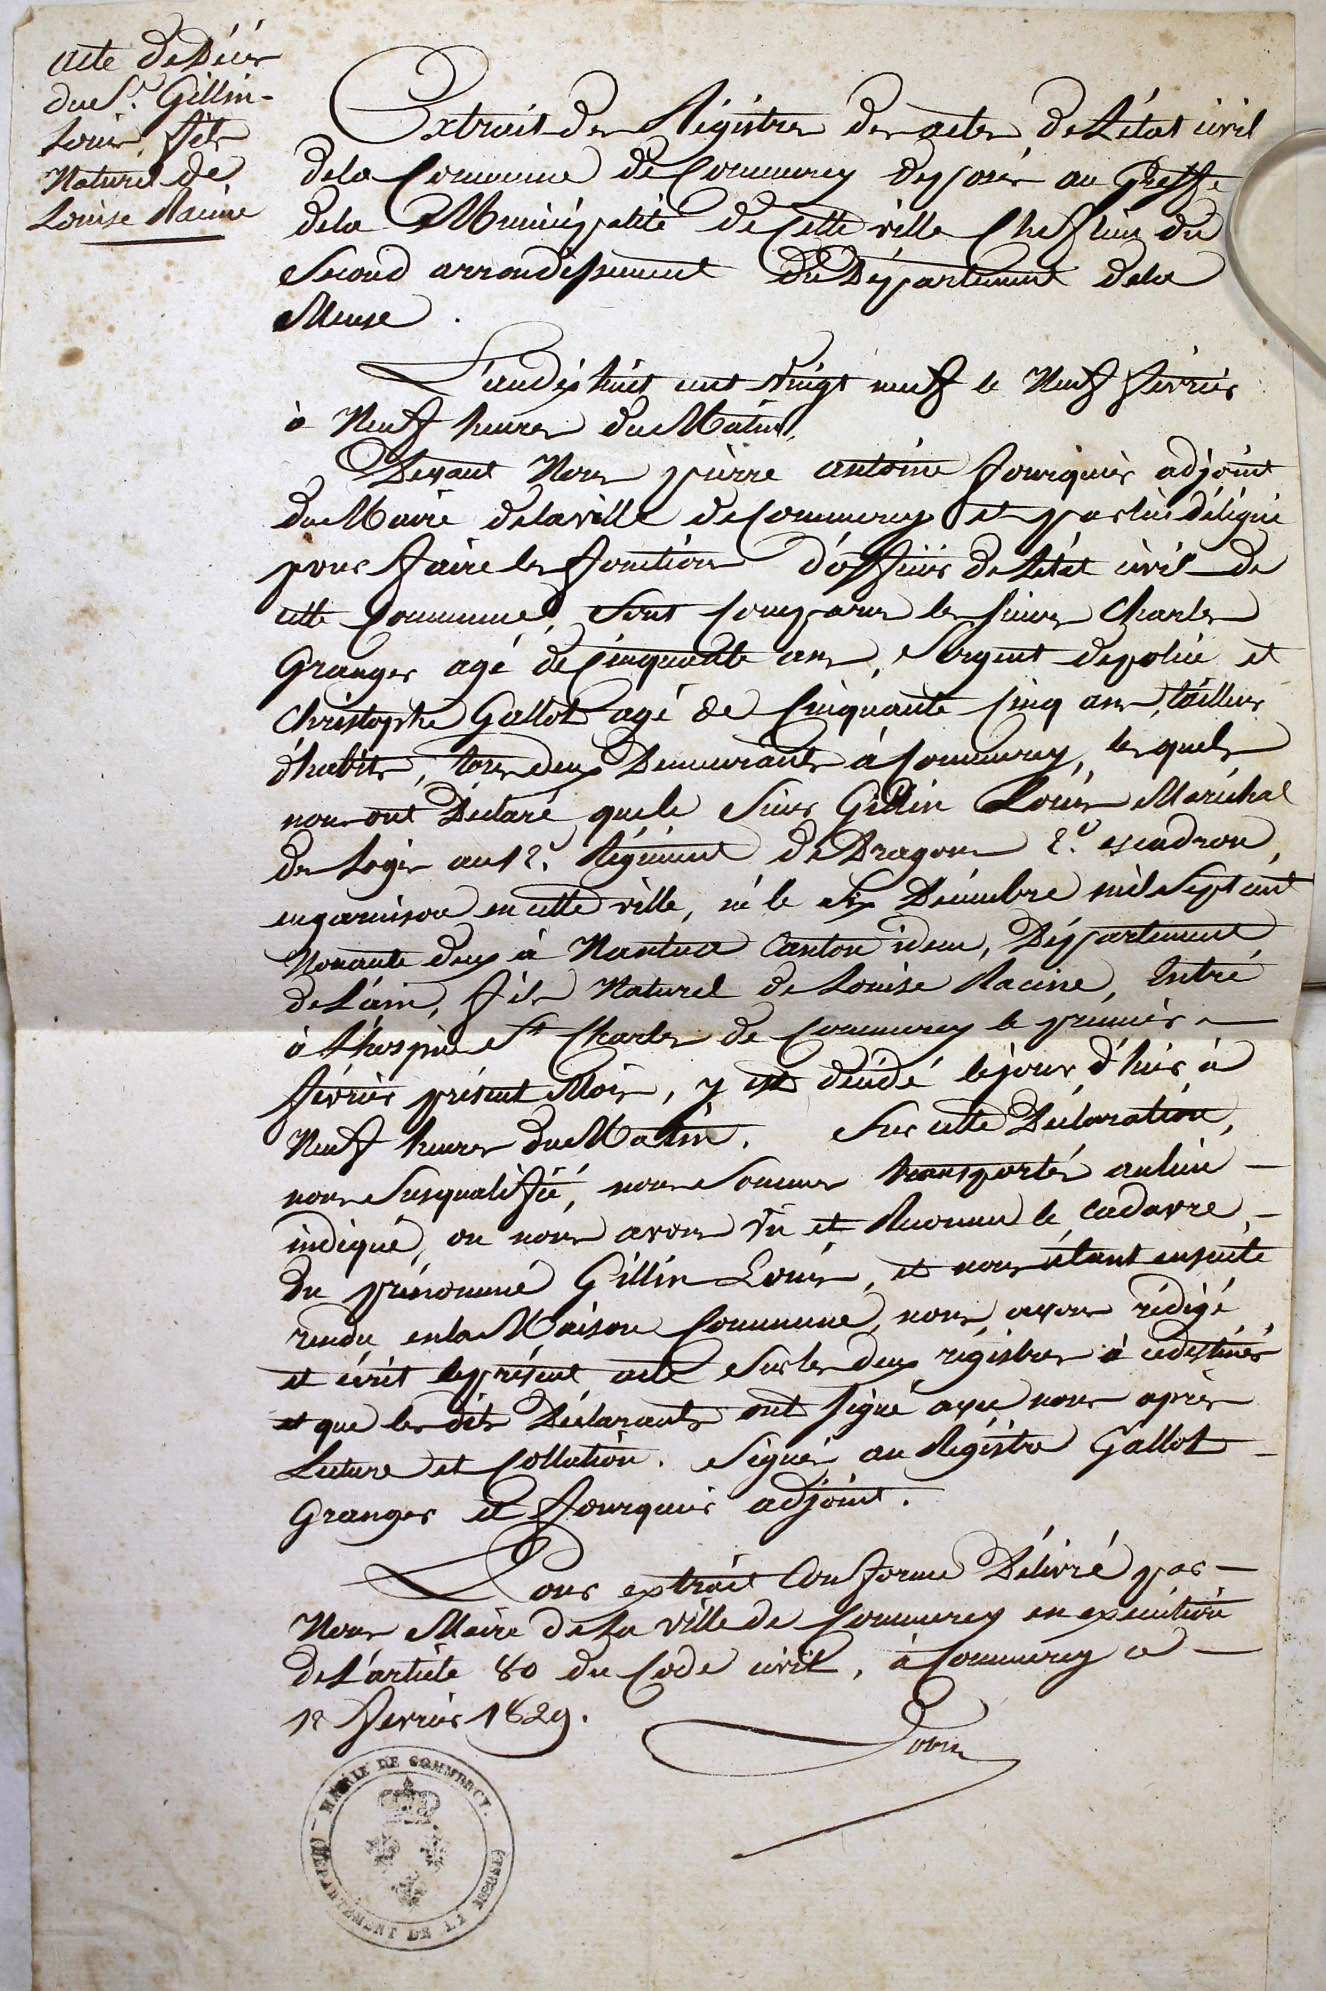 acte de Décès
du Sr. Gillin
Louis, fils
Naturel de
Louise Racine
Extrait des Régistres des actes de L'état civil
de la Commune de Commercy déposés au Greffe
de la Municipalité de Cette ville Chef lieu du
Second arrondissement du Département de la
Meuse.
L'an dix huit cent vingt neuf le Neuf février
à Neuf heures du Matin,
Devant Nous pierre antoine fourquier adjoint
du Maire de la ville de Commercy et par lui délégué
pour faire les fonctions d'officier de l'état civil de
cette Commune, sont Comparus les sieurs Charles
Granger agé de Cinquante ans, Sergent de police et
Christophe Gallot agé de Cinquante Cinq ans, tailleur
d'habits, tous deux Demeurants à Commercy, lesquels
nous ont Déclaré que le sieur Gillin Louis Maréchal
des Logis au 12e. Régiment de Dragons 2e. escadron,
en garnison en cette ville, né le Six Décembre mil Sept cent
Nonante deux à Nantua Canton idem, Département
de L'ain, fils Naturel de Louise Racine, Entré
à l'hospice St Charles de Commercy le premier
février présent Mois, y est décédé le jour d'hier à
Neuf heures du Matin. Sur cette Déclaration,
nous Susqualifié, nous Sommes transportés au lieu
indiqué, ou nous avons vu et Reconnu le cadavre
du prénommé Gillin Louis, et nous étant ensuite
rendu en la Maison Commune, nous avons rédigé
et écrit le présent acte Sur les deux régistres à ce destinés
et que les dits Déclarants ont signé avec nous après
Lecture et Collation. Signés au Régistre Gallot
Granger et fourquier adjoint.
Pour extrait Conforme Délivré par
Nous Maire de La ville de Commercy en exécution
de L'article 80 du Code civil, à Commercy ce
12 fevrier 1829.
MAIRIE DE COMMERCY.
DÉPARTEMENT DE LA MEUSE